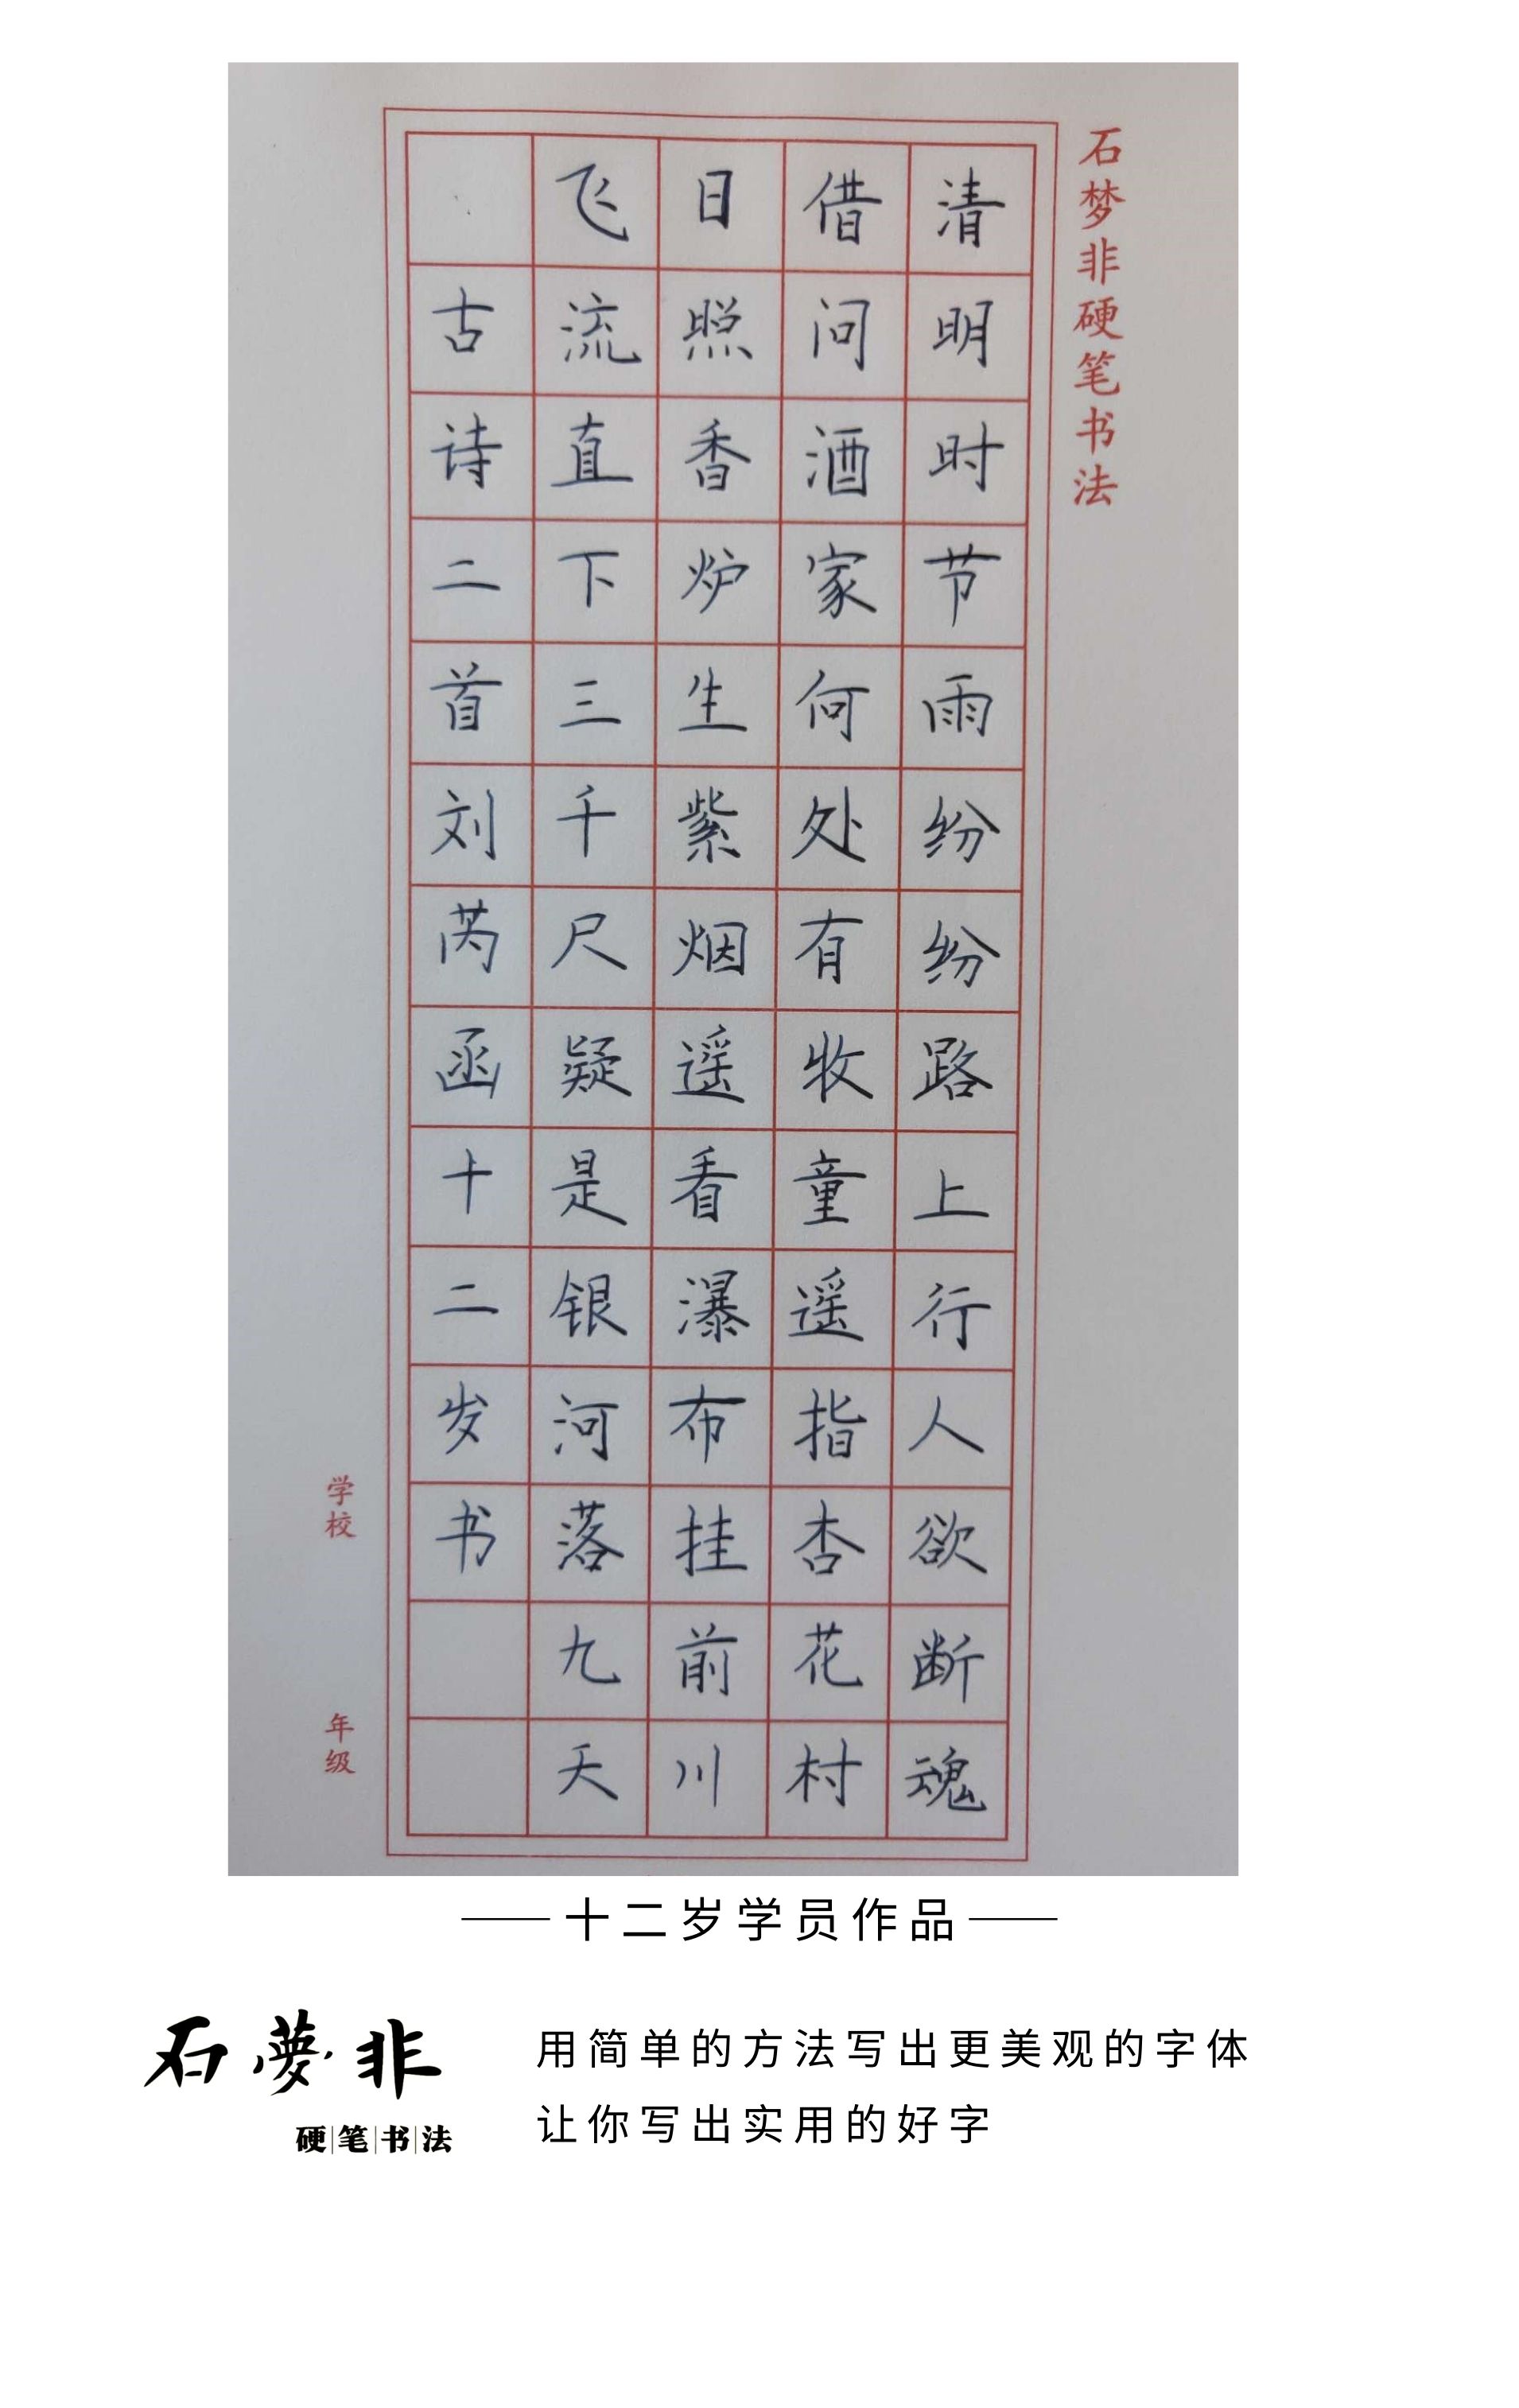 石梦非硬笔书法
清明时节雨纷纷路上行人欲断魂
借问酒家何处有牧童遥指杏花村
日照香炉生紫烟遥看瀑布挂前川
飞流直下三千尺疑是银河落九天
古诗二首刘芮函十二岁书
学校
年级
十二岁学员作品
石夢非
硬笔书法
用简单的方法写出更美观的字体
让你写出实用的好字